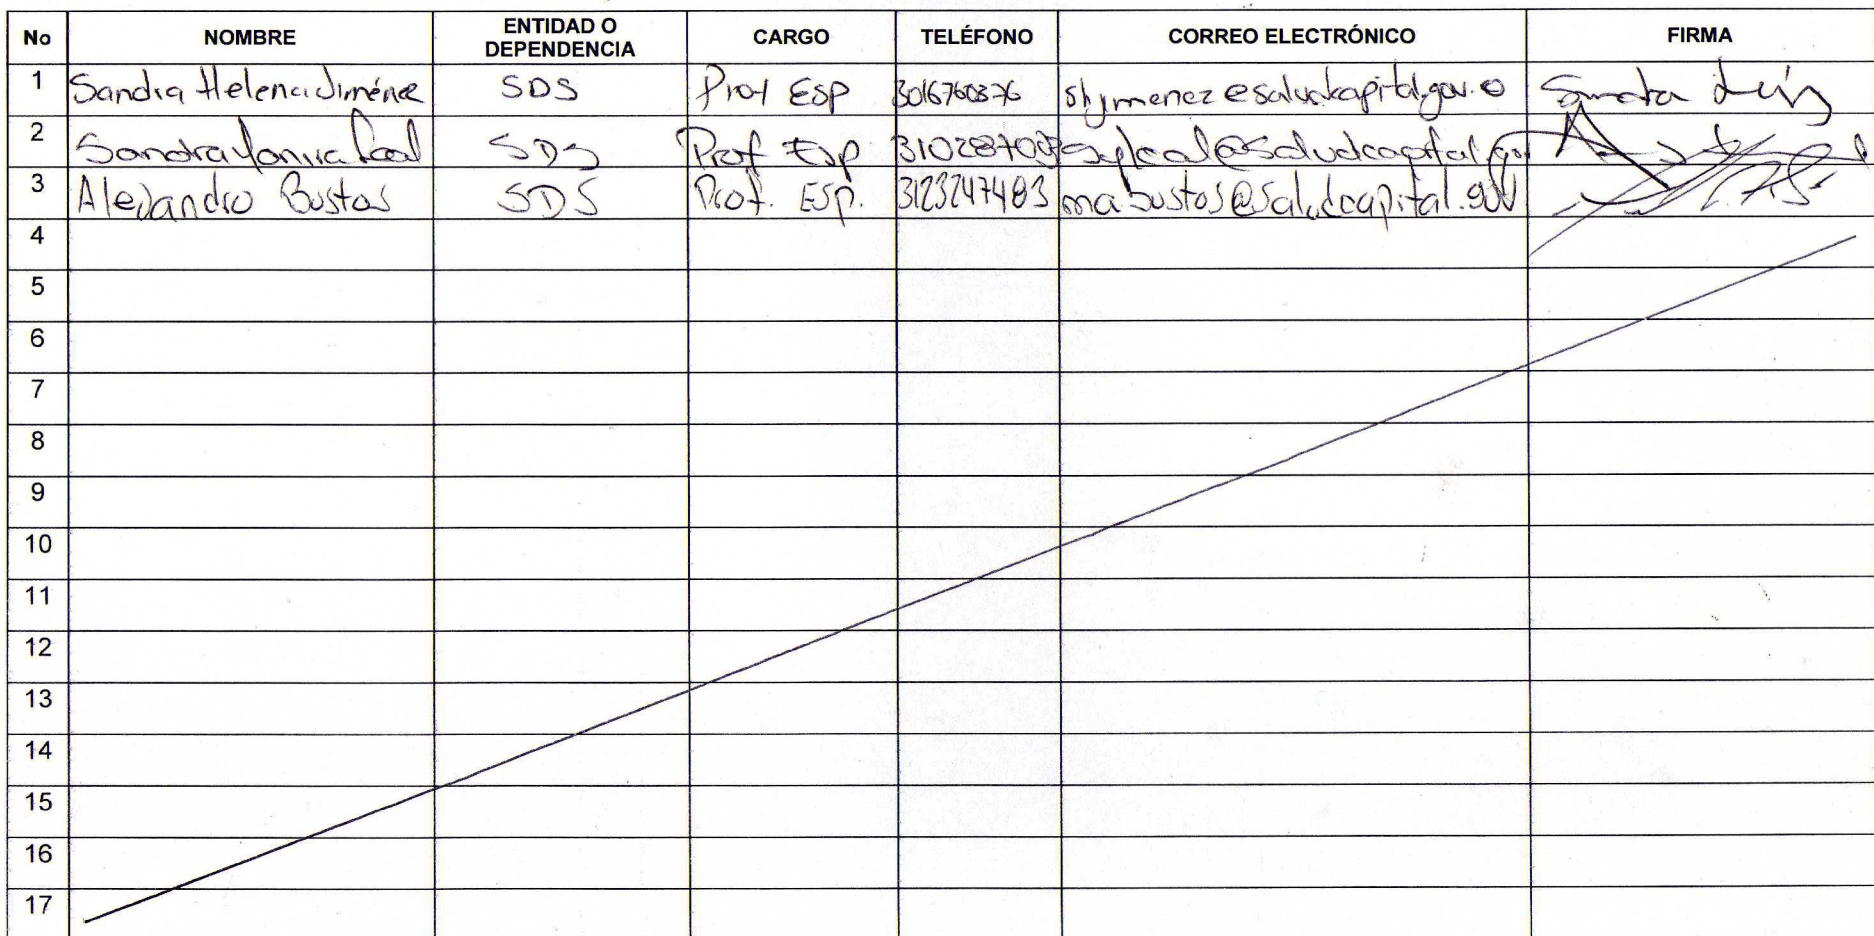 No NOMBRE ENTIDAD O DEPENDENCIA CARGO TELÉFONO CORREO ELECTRÓNICO FIRMA
1 Sandra Helena Jiménez SDS Prof Esp 3016760876 shjimenez@saludcapital.gov.o
2 Sandra Leal SDS Prof Esp syleal@saludcapital.gov
3 Alejandro Bustos SDS Prof. Esp. 3123247483 mabustos@saludcapital.gov
4
5
6
7
8
9
10
11
12
13
14
15
16
17